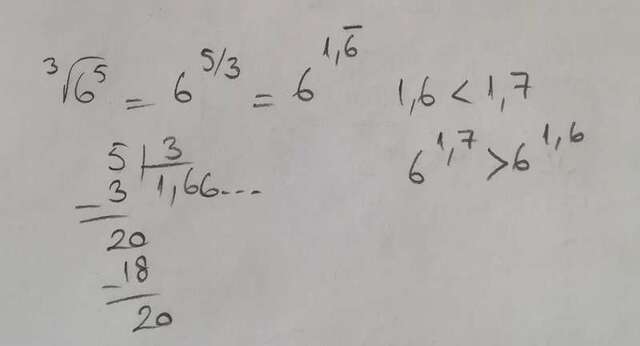 ³√6⁵ = 6^5/3 = 6^1,6̅
1,6 < 1,7
6^1,7 > 6^1,6
5 | 3
- 3 1,66...
20
- 18
20